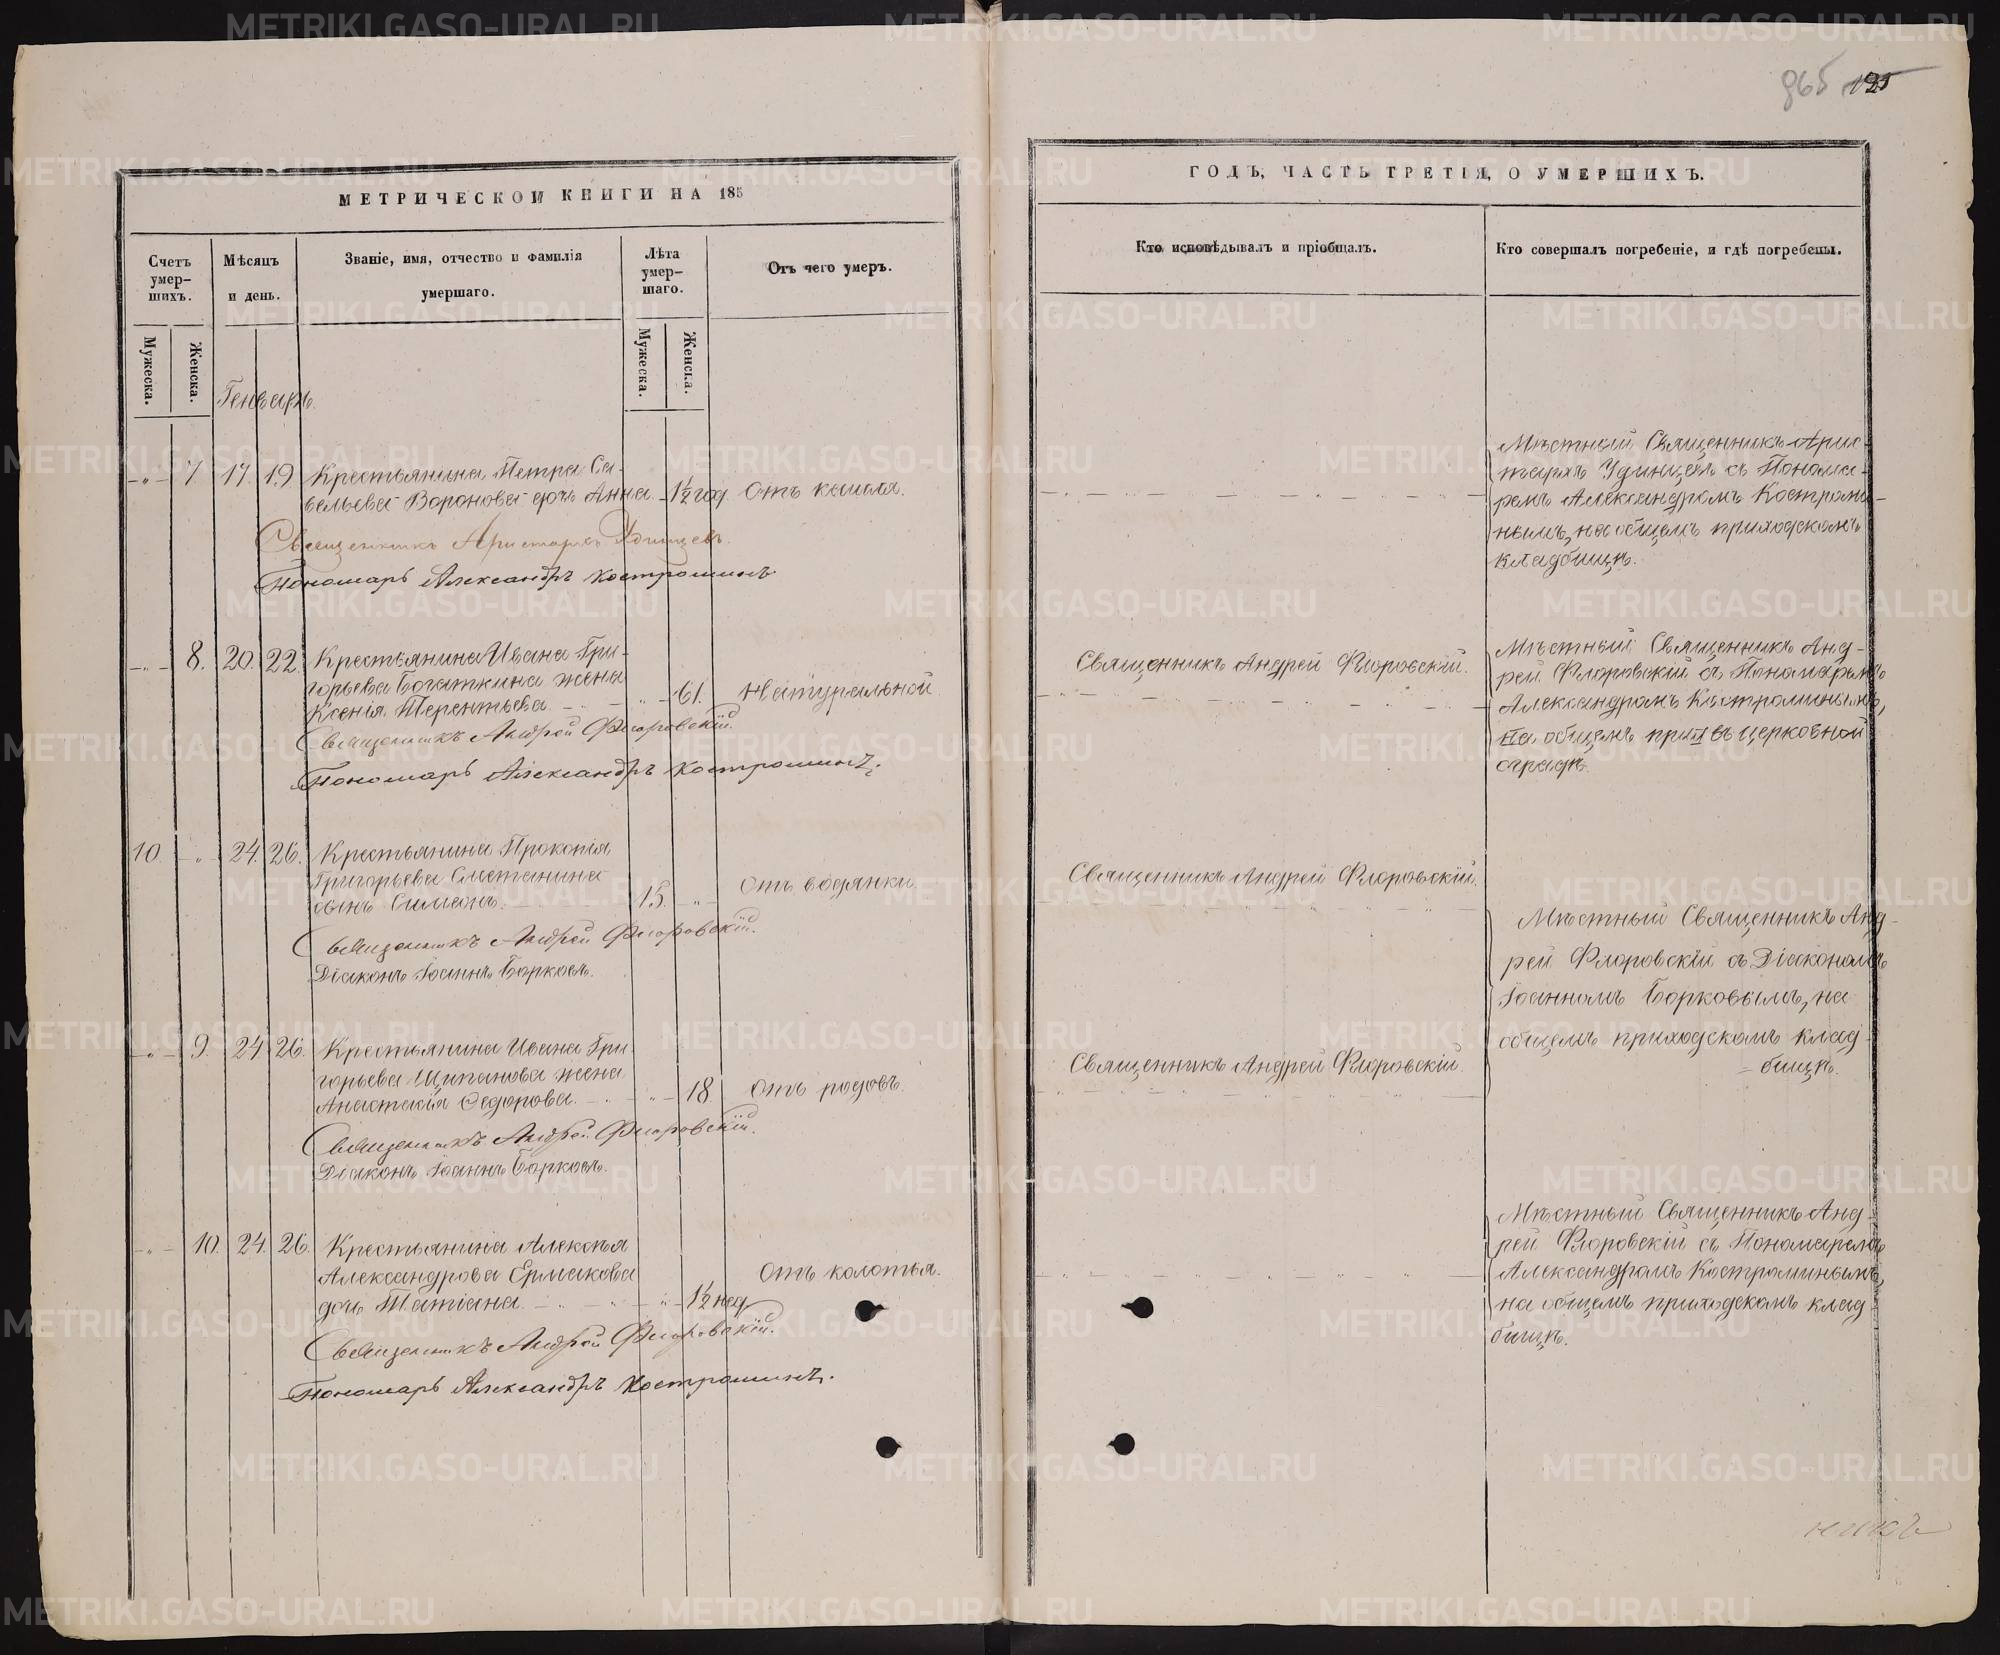 965 125
МЕТРИЧЕСКОЙ КНИГИ НА 185
Счетъ умер-
шихъ.
Мужеска.
Женска.
Мѣсяцъ
и день.
Званіе, имя, отчество и фамилія
умершаго.
Лѣта
умер-
шаго.
Мужеска.
Женска.
Отъ чего умеръ.
Генварь.
7 17. 19. Крестьянина Петра Са-
вельева Воронова дочь Анна. 1½ год. Отъ кашля.
Священникъ Аристархъ Удинцевъ.
Пономарь Александръ Костроминъ
8. 20. 22. Крестьянина Ивана Гри-
горьева Богаткина жена
Ксенія Терентьева. 61. Натуральной.
Священникъ Андрей Флоровскій.
Пономарь Александръ Костроминъ.
10. 24. 26. Крестьянина Прокопія
Григорьева Сметанина
сынъ Симеонъ. 15. Отъ водянки.
Священникъ Андрей Флоровскій.
Діаконъ Іоаннъ Борковъ.
9. 24. 26. Крестьянина Ивана Гри-
горьева Щипанова жена
Анастасія Федорова. 18. Отъ родовъ.
Священникъ Андрей Флоровскій.
Діаконъ Іоаннъ Борковъ.
10. 24. 26. Крестьянина Алексѣя
Александрова Ермакова
дочь Татіана. 1½ нед. Отъ колотья.
Священникъ Андрей Флоровскій.
Пономарь Александръ Костроминъ.
ГОДЪ, ЧАСТЬ ТРЕТІЯ, О УМЕРШИХЪ.
Кто исповѣдывалъ и пріобщалъ.
Кто совершалъ погребеніе, и гдѣ погребены.
Мѣстный Священникъ Арис-
тархъ Удинцевъ съ Понома-
ремъ Александромъ Костроми-
нымъ, на общемъ приходскомъ
кладбищѣ.
Священникъ Андрей Флоровскій.
Мѣстный Священникъ Анд-
рей Флоровскій съ Пономаремъ
Александромъ Костроминымъ,
на общемъ при въ церковной
оградѣ.
Священникъ Андрей Флоровскій.
Мѣстный Священникъ Анд-
рей Флоровскій съ Діакономъ
Іоанномъ Борковымъ, на
общемъ приходскомъ клад-
бищѣ.
Священникъ Андрей Флоровскій.
Мѣстный Священникъ Анд-
рей Флоровскій съ Пономаремъ
Александромъ Костроминымъ,
на общемъ приходскомъ клад-
бищѣ.
никъ
METRIKI.GASO-URAL.RU